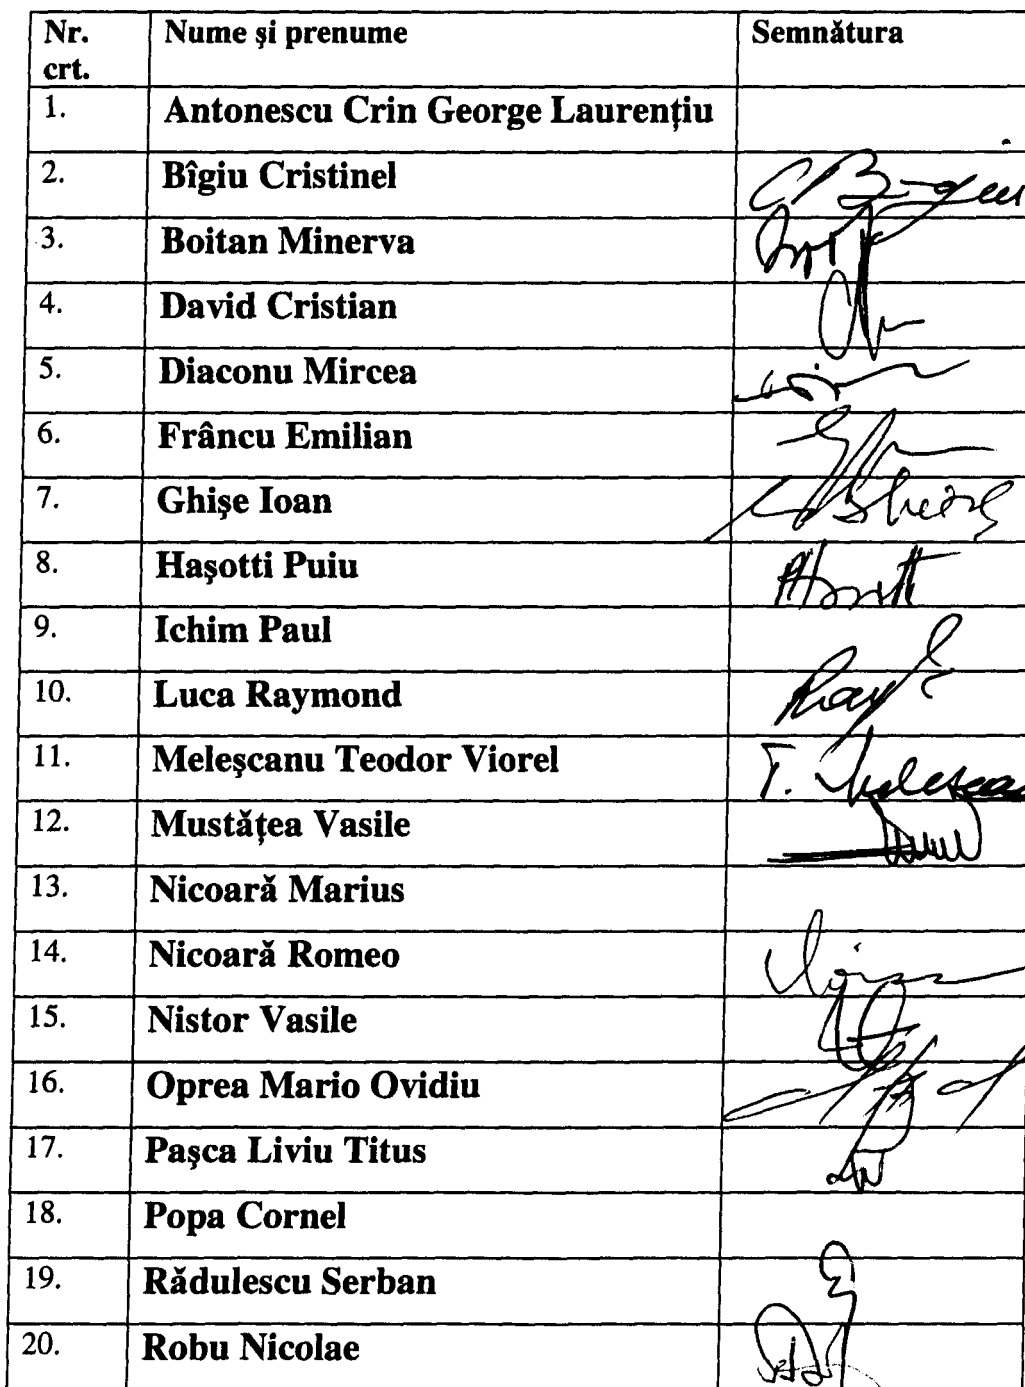 Nr. Nume și prenume Semnătura
crt.
1. Antonescu Crin George Laurențiu
2. Bîgiu Cristinel
3. Boitan Minerva
4. David Cristian
5. Diaconu Mircea
6. Frâncu Emilian
7. Ghișe Ioan
8. Hașotti Puiu
9. Ichim Paul
10. Luca Raymond
11. Meleșcanu Teodor Viorel
12. Mustățea Vasile
13. Nicoară Marius
14. Nicoară Romeo
15. Nistor Vasile
16. Oprea Mario Ovidiu
17. Pașca Liviu Titus
18. Popa Cornel
19. Rădulescu Serban
20. Robu Nicolae